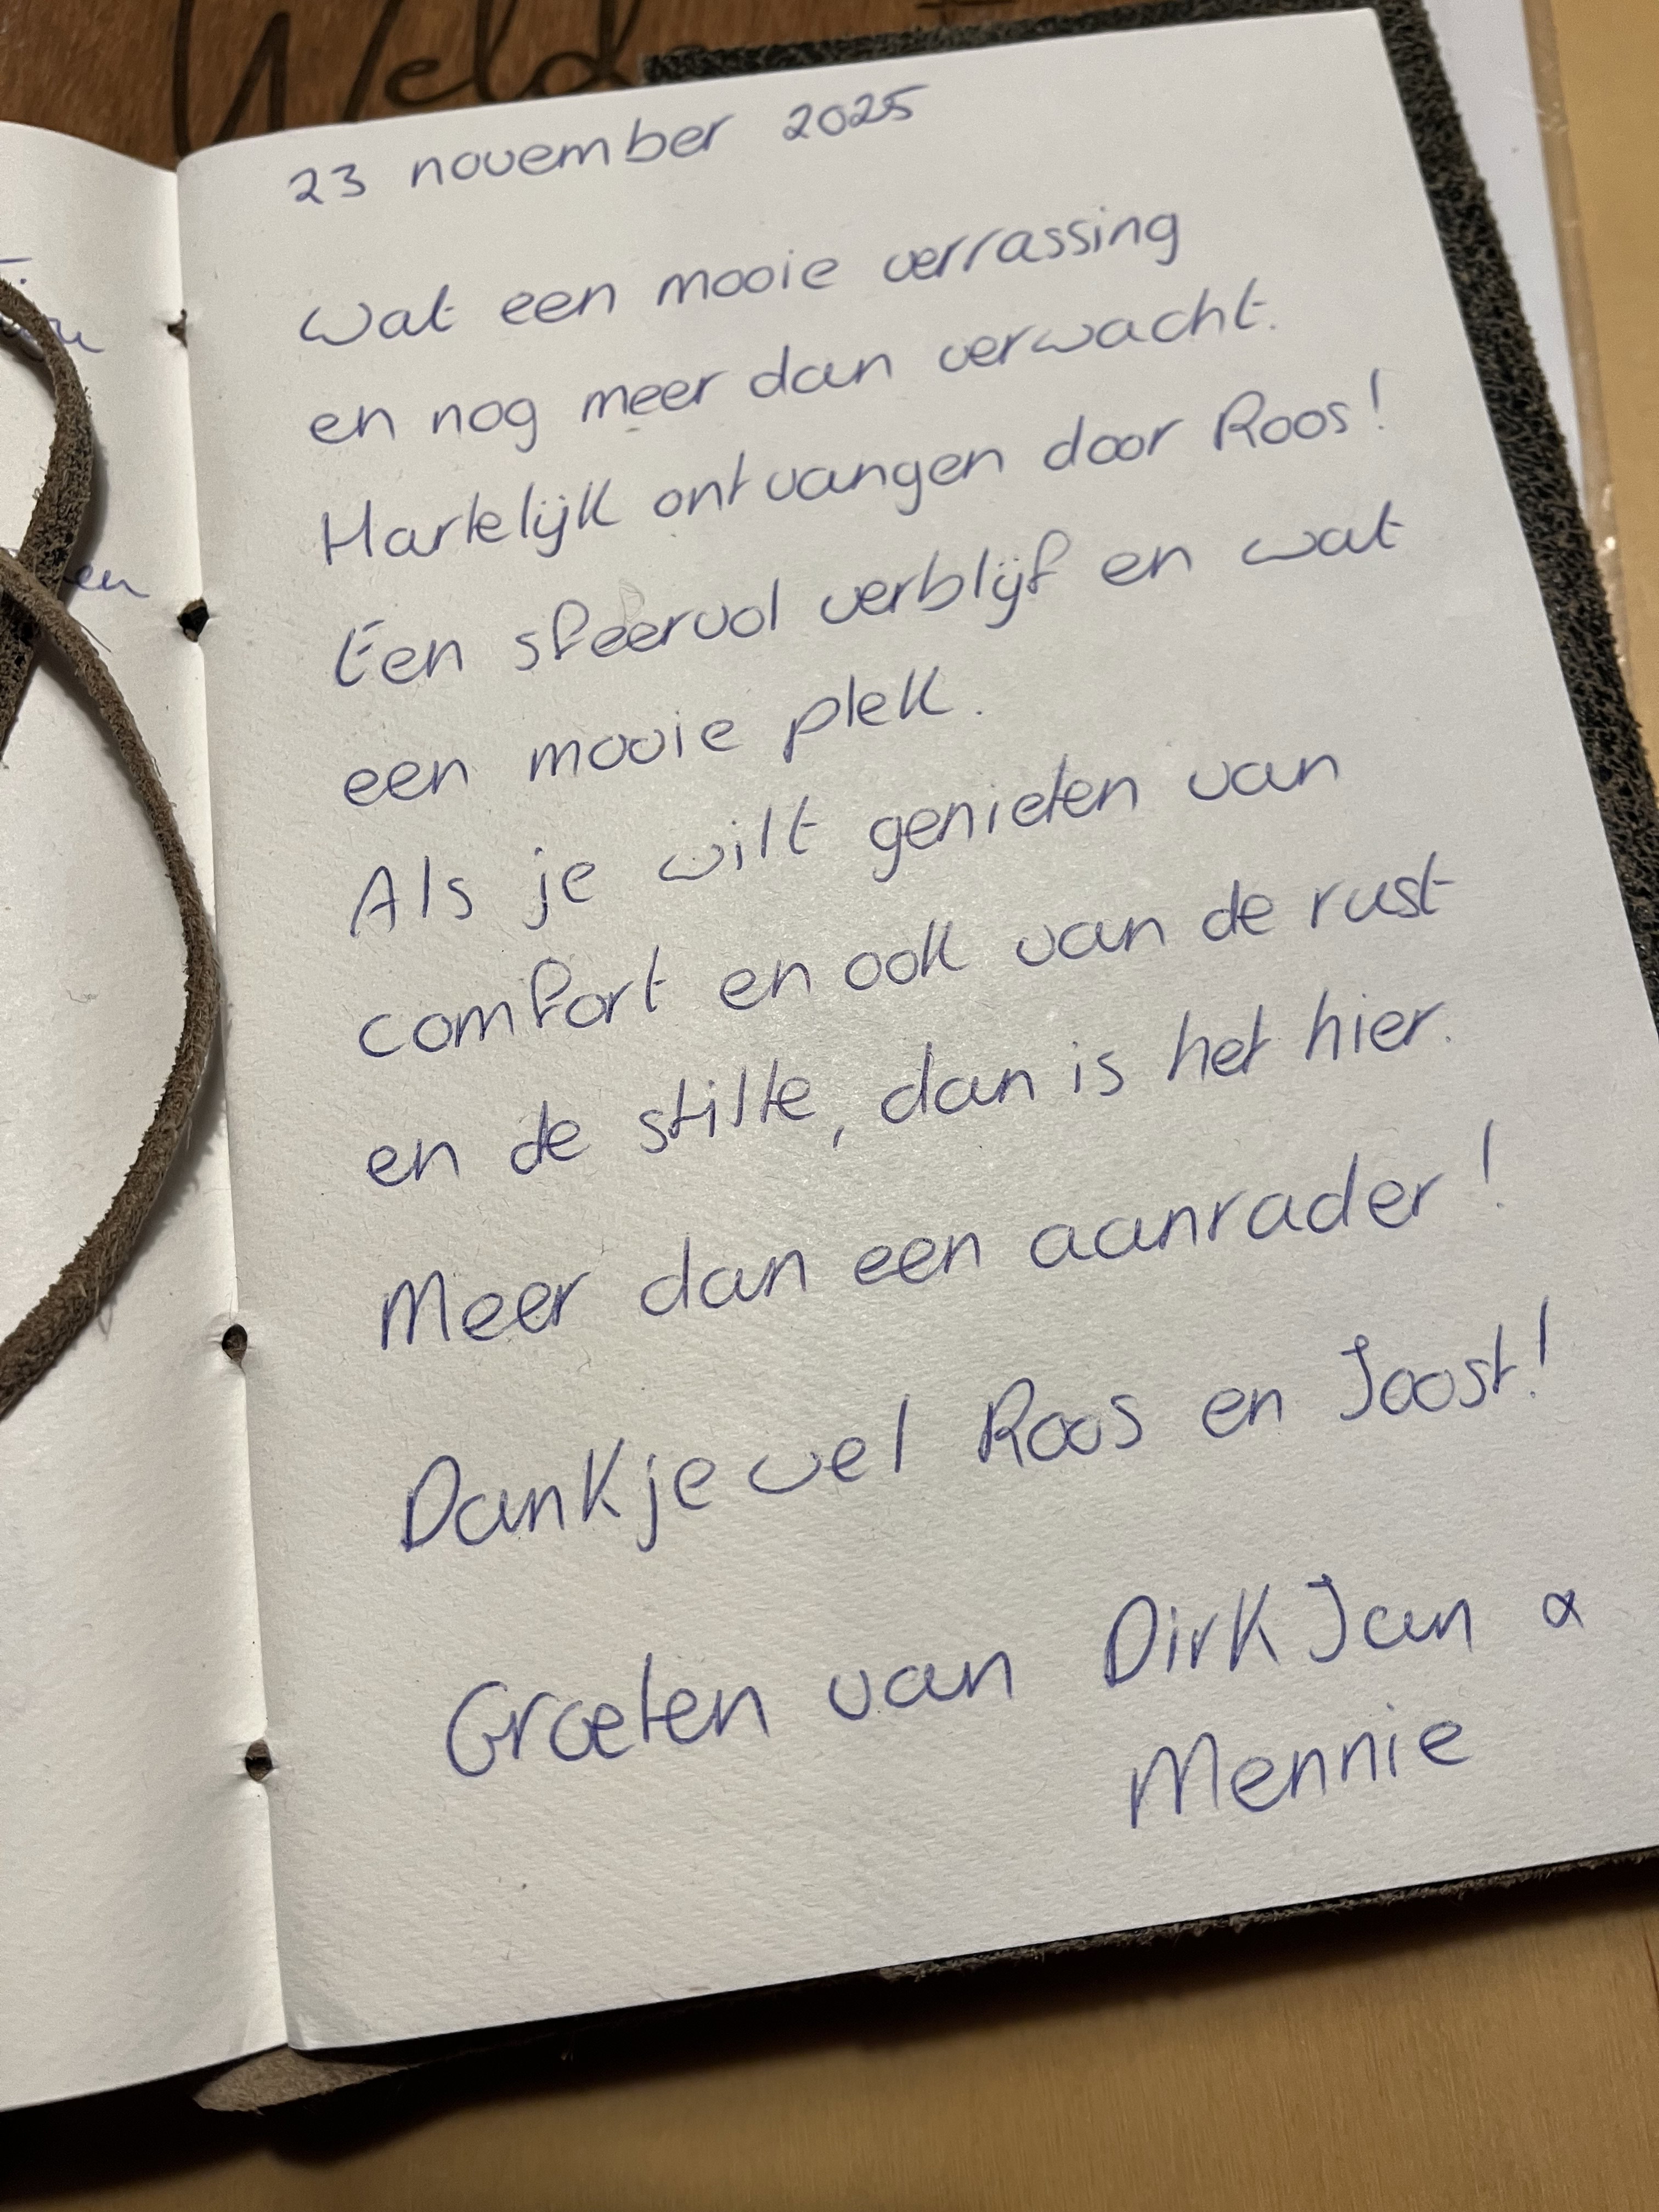 Weld
23 november 2025
Wat een mooie verrassing
en nog meer dan verwacht.
Hartelijk ontvangen door Roos!
Een sfeervol verblijf en wat
een mooie plek.
Als je wilt genieten van
comfort en ook van de rust
en de stilte, dan is het hier.
Meer dan een aanrader!
Dankjewel Roos en Joost!
Groeten van Dirk Jan &
Mennie